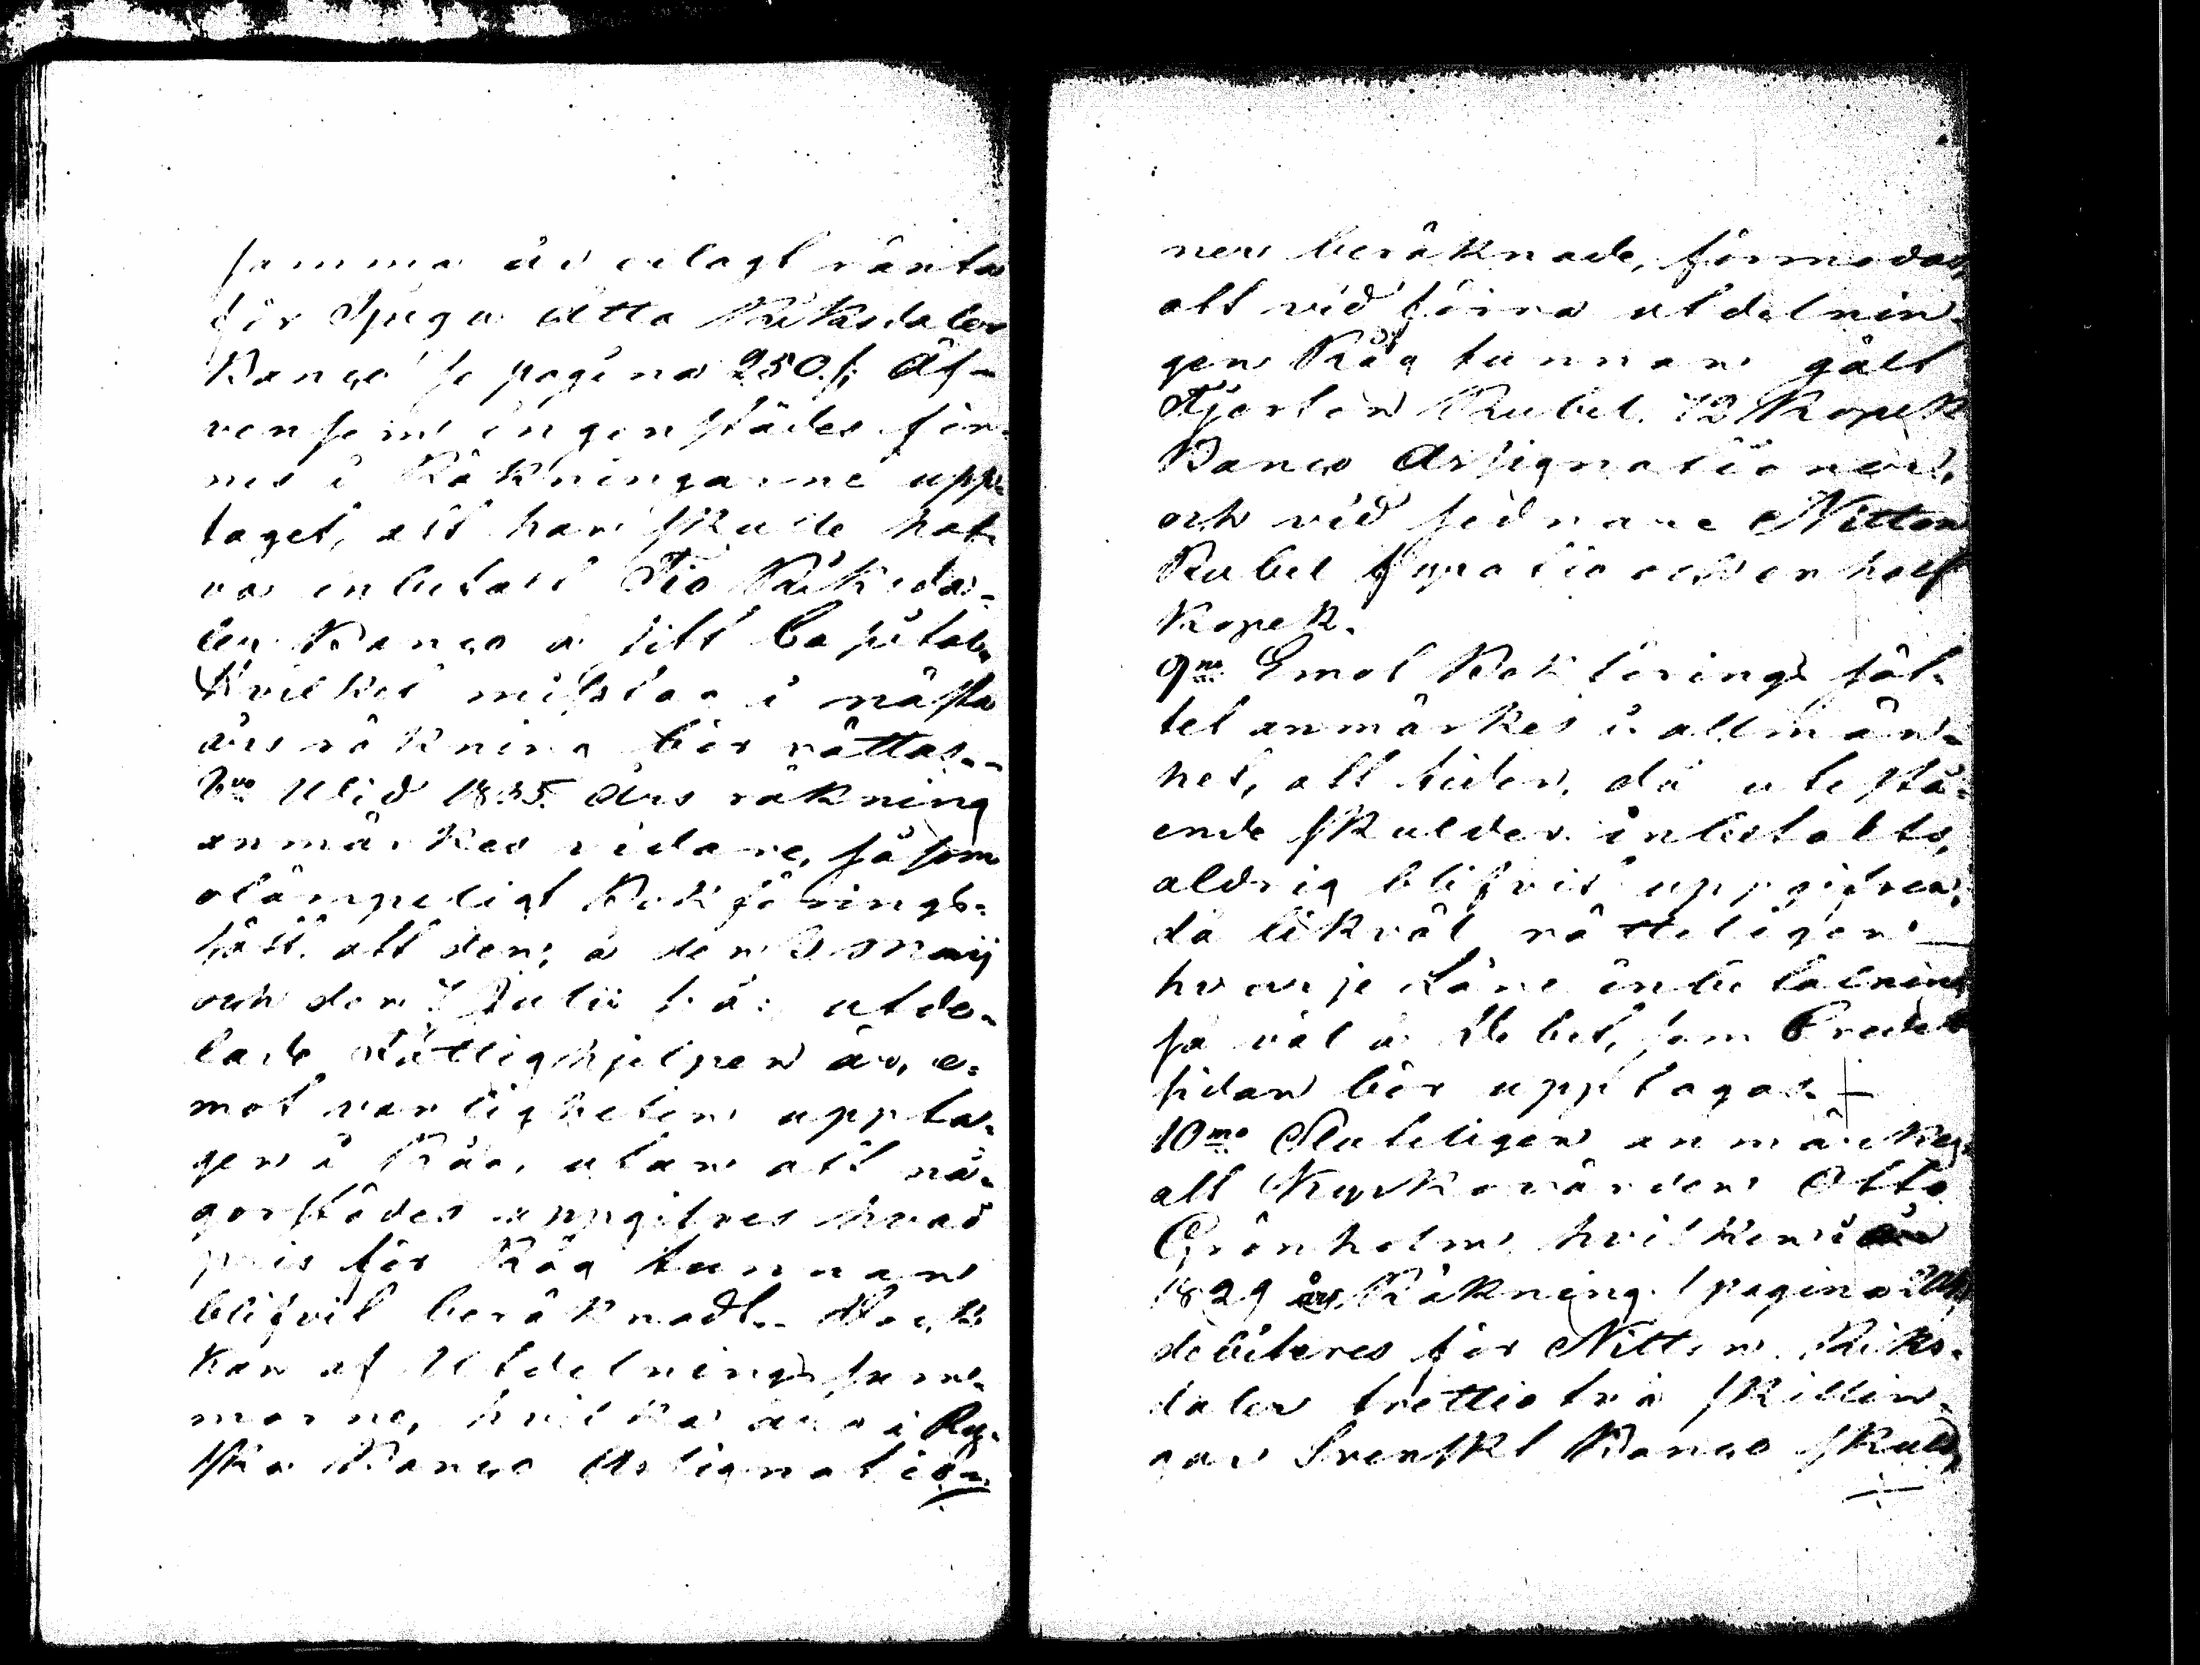 samma år erlagt ränta
för Tjugu åtta Riksdaler
Banco se pagina 250. s; Äf-
vensom ingenstädes fin-
nes i Räkningarne upp-
taget, att han skulle haf-
va inbetalt Tio Riksda-
ler Banco a sitt Capital,
hvilket misstag i nästa
års räkning bör rättas.-
8vo Wid 1835. års räkning
anmärkes vidare, såsom
olämpeligt Bokförings-
sätt, att den, å den 3 Maij
och den 7 Julii s. å: utde-
lade Fättighjelpen är, e-
mot vanligheten uppta-
gen i Råg, utan att nå-
gorstädes uppgifves hvad
pris för Råg tunnan
blifvit beräknadt.- Dock
kan af Utdelnings sum-
morne, hvilka äro i Ry-
ska Banco Assignatio-
ner beräknade, förmodas,
att vid förra utdelnin-
gen Råg tunnan gält
Fjorton Rubel 72 Kopek
Banco Assignationer,
och vid sednare Nitton
Rubel sjuttio och en half
Kopek.
9no Emot Bokförings sät-
tet anmärkes i allmän-
het, att tiden, då utestå-
ende skulder inbetalts,
aldrig blifvit uppgifven,
då likväl rätteligen
hvarje Låne inbetalning
så väl å Debet, som Credit
sidan bör upptagas.-
10mo Sluteligen anmärkes,
att Kyrkovärden Otto
Grönholm, hvilken i
1829 års Räkning (pagina
debiteres för Nitton Riks-
daler trettiotvå skillin-
gar Svenskt Banco skuld,